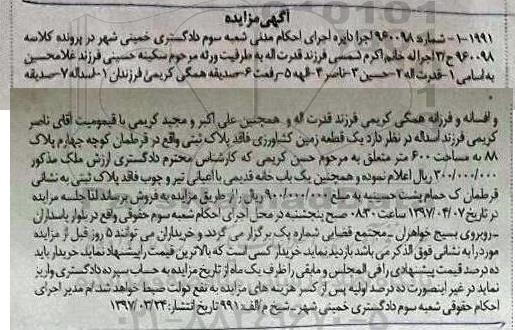 آگهی مزایده
۱۹۹۱-۱- شماره ۹۶۰۰۹۸ اجرا دایره اجرای احکام مدنی شعبه سوم دادگستری خمینی شهر در پرونده کلاسه
۹۶۰۰۹۸ ج/۳ اجرا له خانم اکرم شمسی فرزند قدرت اله به طرفیت ورثه مرحوم سکینه حسینی فرزند غلامحسین
به اسامی ۱-قدرت اله ۲-حسین ۳-ناصر ۴-الهه ۵-رفعت ۶-صدیقه همگی کریمی فرزندان ۱-اسداله ۷-صدیقه
و افسانه و فرزانه همگی کریمی فرزند قدرت اله و همچنین علی اکبر و مجید کریمی با قیمومیت آقای ناصر
کریمی فرزند اسداله در نظر دارد یک قطعه زمین کشاورزی فاقد پلاک ثبتی واقع در قرطمان کوچه چهارم پلاک
۸۸ به مساحت ۶۰۰ متر متعلق به مرحوم حسن کریمی که کارشناس محترم دادگستری ارزش ملک مذکور
۳۰۰/۰۰۰/۰۰۰ ریال اعلام نموده و همچنین یک باب خانه قدیمی با اعیانی تیر و چوب فاقد پلاک ثبتی به نشانی
قرطمان ک حمام پشت حسینیه به مبلغ ۹۰۰/۰۰۰/۰۰۰ ریال از طریق مزایده به فروش برساند لذا جلسه مزایده
در تاریخ ۱۳۹۷/۰۴/۰۷ ساعت ۰۸:۳۰ صبح پنجشنبه در محل اجرای احکام شعبه سوم حقوقی واقع در بلوار پاسداران
-روبروی بسیج خواهران -مجتمع قضایی شماره یک برگزار می گردد و خریداران می توانند ۵ روز قبل از مزایده
مورد را به نشانی فوق الذکر می باشد بازدید نماید خریدار کسی است که بالاترین قیمت را پیشنهاد نماید خریدار باید
ده درصد قیمت پیشنهادی را فی المجلس و مابقی را ظرف یک ماه از تاریخ مزایده به حساب سپرده دادگستری واریز
نماید در غیر اینصورت ده درصد اولیه پس از کسر هزینه های مزایده به نفع دولت ضبط خواهد شد/م مدیر اجرای
احکام حقوقی شعبه سوم دادگستری خمینی شهر- شیخ م/الف:۹۹۱ تاریخ انتشار: ۱۳۹۷/۰۳/۲۴